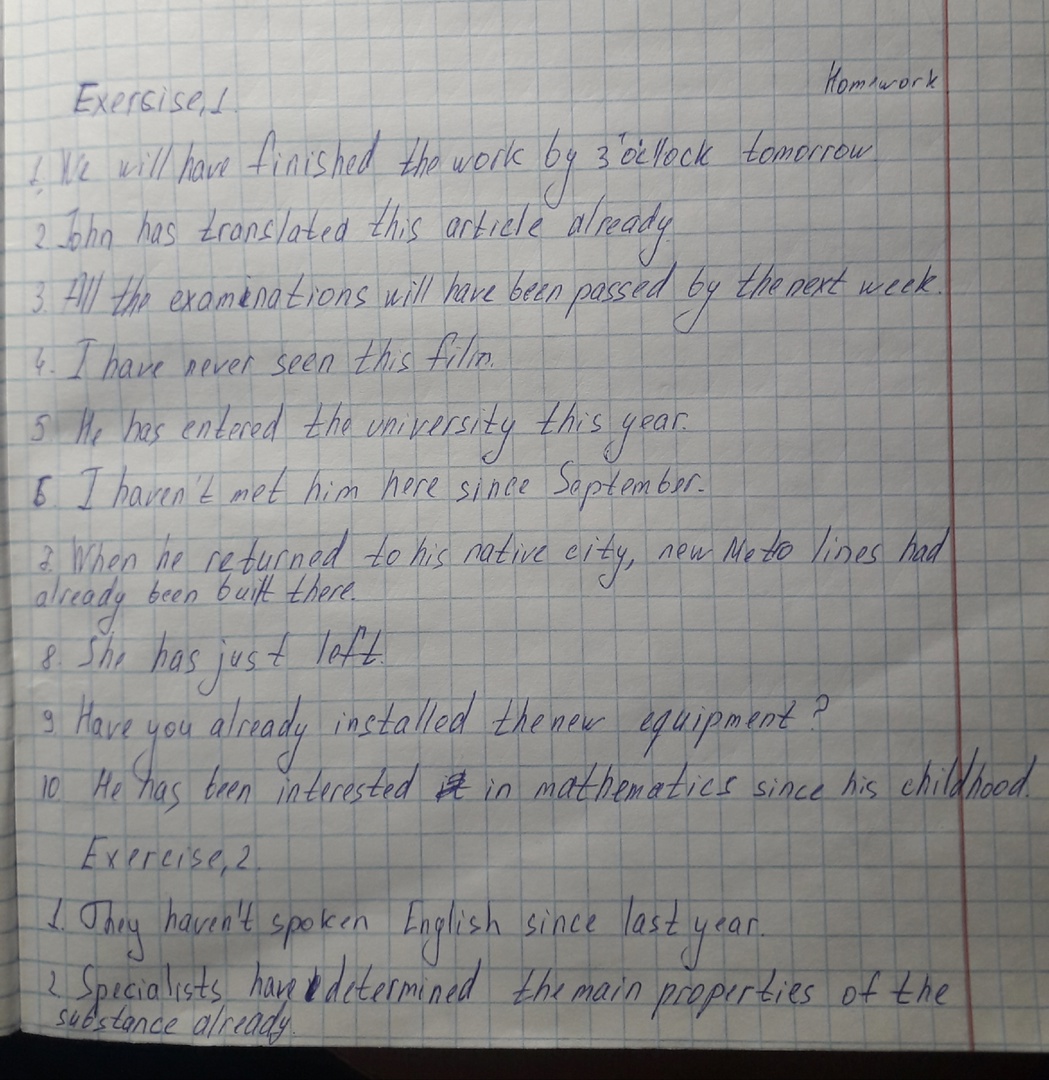 Homework
Exercise, 1.
1. We will have finished the work by 3 o'clock tomorrow
2 John has translated this article already.
3. All the examinations will have been passed by the next week.
4. I have never seen this film.
5 He has entered the university this year.
6 I haven't met him here since September.
7. When he returned to his native city, new Meto lines had
already been built there.
8. She has just left.
9 Have you already installed the new equipment?
10 He has been interested in mathematics since his childhood.
Exercise, 2.
1. They haven't spoken English since last year.
2. Specialists have determined the main properties of the
substance already.